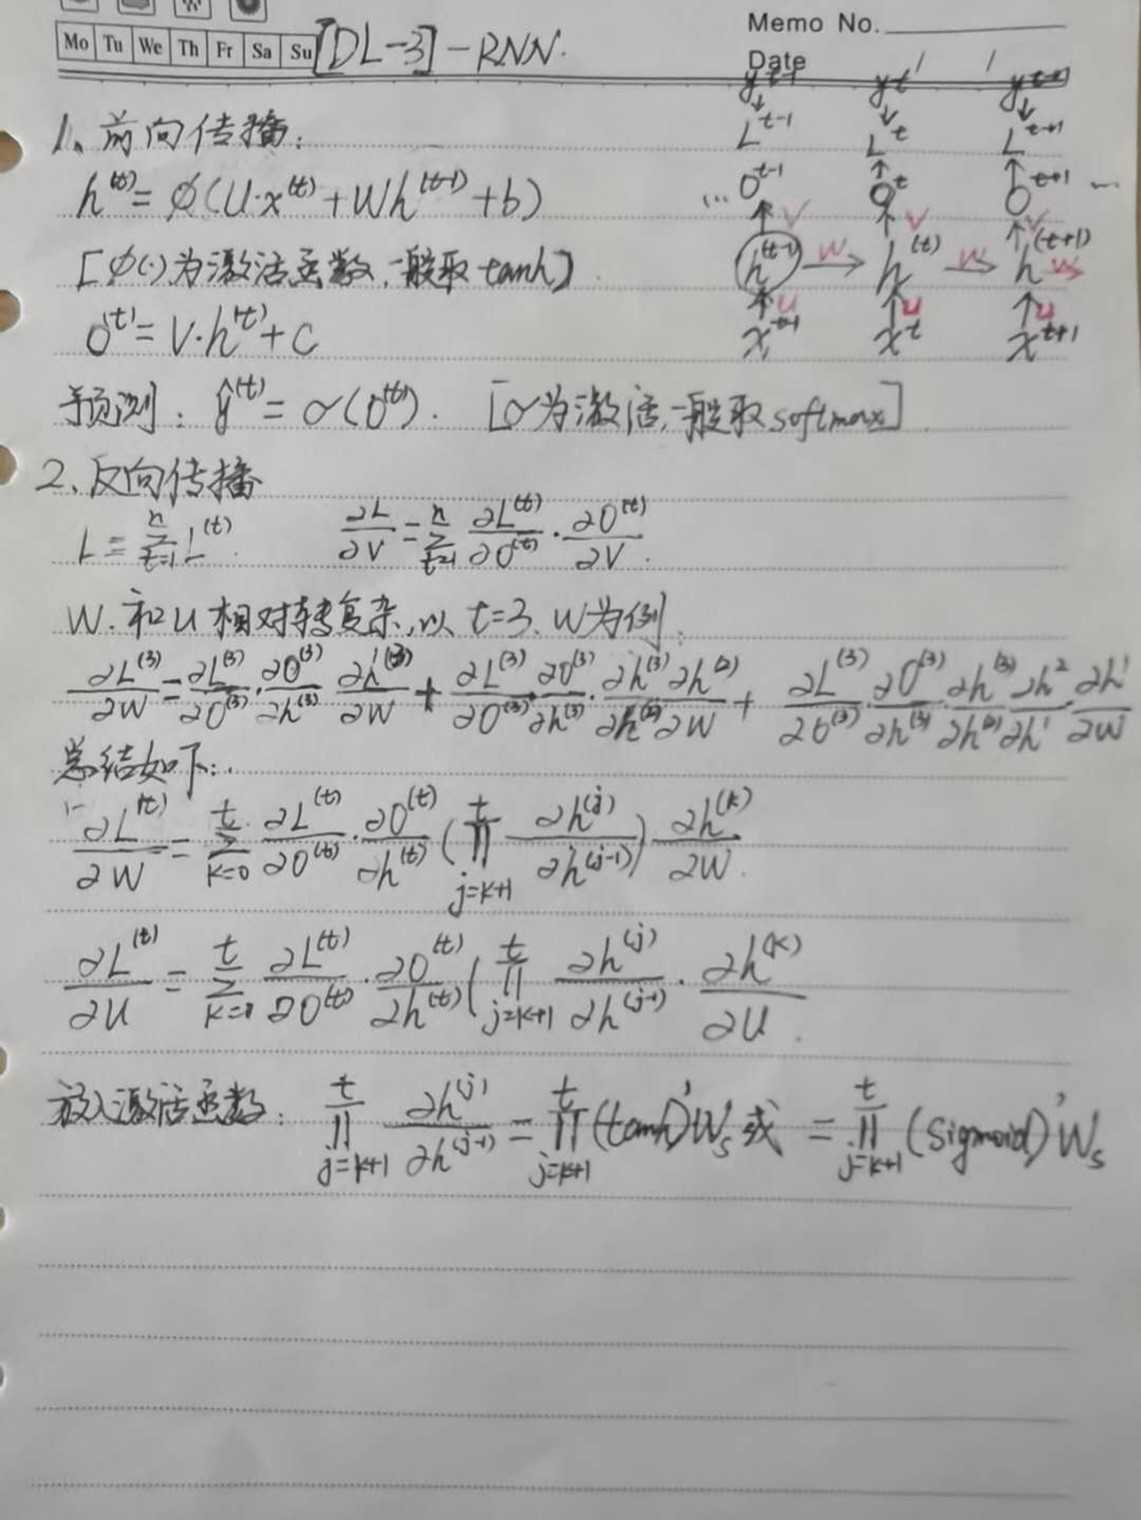 Memo No.
Mo Tu We Th Fr Sa Su
Date / /
[DL-3]-RNN.
y^{t-1} y^t
L^{t-1} L^t L^{t+1}
... O^{t-1} O^t O^{t+1} ...
V V V
h^{(t-1)} W h^{(t)} W h^{(t+1)} W
U U U
x^{t-1} x^t x^{t+1}
1、前向传播：
h^{(t)} = ϕ(U·x^{(t)} + Wh^{(t-1)} + b)
[ϕ(·)为激活函数，一般取tanh]
O^{(t)} = V·h^{(t)} + C
预测：ŷ^{(t)} = σ(O^{(t)}). [σ为激活，一般取softmax]
2、反向传播
L = ∑_{t=1}^{n} L^{(t)}. ∂L/∂V = ∑_{t=1}^{n} ∂L^{(t)}/∂O^{(t)} · ∂O^{(t)}/∂V.
W.和U相对转复杂，以t=3、W为例：
∂L^{(3)}/∂W = ∂L^{(3)}/∂O^{(3)} · ∂O^{(3)}/∂h^{(3)} ∂h^{(3)}/∂W + ∂L^{(3)}/∂O^{(3)} · ∂O^{(3)}/∂h^{(3)} · ∂h^{(3)}/∂h^{(2)} ∂h^{(2)}/∂W + ∂L^{(3)}/∂O^{(3)} · ∂O^{(3)}/∂h^{(3)} · ∂h^{(3)}/∂h^{(2)} ∂h^2/∂h^1 · ∂h^1/∂W
总结如下：
∂L^{(t)}/∂W = ∑_{k=0}^{t} ∂L^{(t)}/∂O^{(t)} · ∂O^{(t)}/∂h^{(t)} (∏_{j=k+1}^{t} ∂h^{(j)}/∂h^{(j-1)}) ∂h^{(k)}/∂W.
∂L^{(t)}/∂U = ∑_{k=0}^{t} ∂L^{(t)}/∂O^{(t)} · ∂O^{(t)}/∂h^{(t)} (∏_{j=k+1}^{t} ∂h^{(j)}/∂h^{(j-1)} · ∂h^{(k)}/∂U.
放入激活函数：∏_{j=k+1}^{t} ∂h^{(j)}/∂h^{(j-1)} = ∏_{j=k+1}^{t} (tanh)'W_s 或 = ∏_{j=k+1}^{t} (sigmoid)'W_s